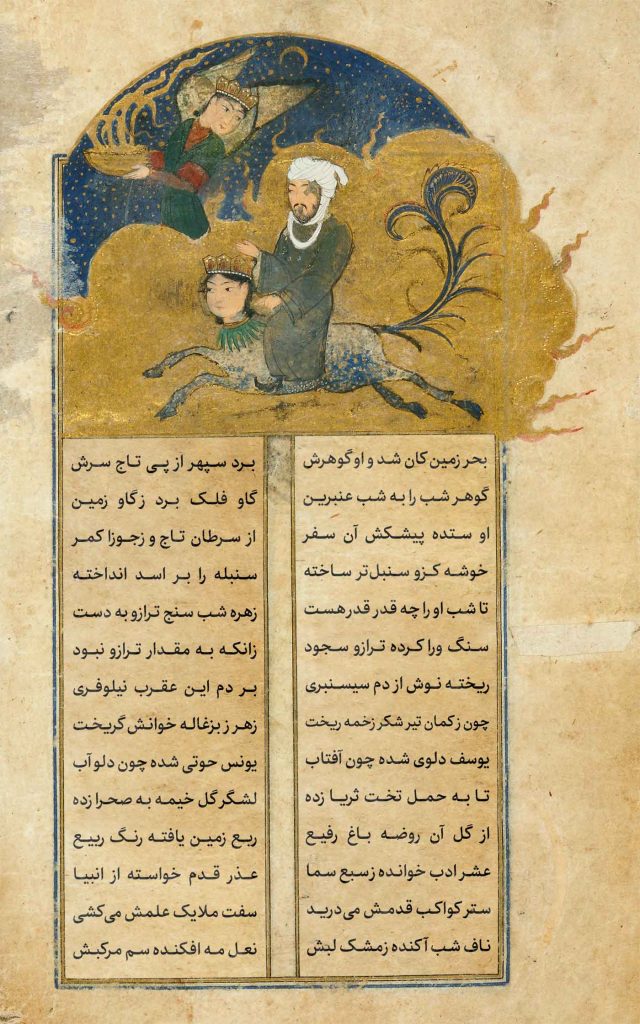 بحر زمین کان شد و او گوهرش برد سپهر از پی تاج سرش
گوهر شب را به شب عنبرین گاو فلک برد ز گاو زمین
او ستده پیشکش آن سفر از سرطان تاج و ز جوزا کمر
خوشه کزو سنبل تر ساخته سنبله را بر اسد انداخته
تا شب او را چه قدر قدر هست زهره شب سنج ترازو به دست
سنگ ورا کرده ترازو سجود زانکه به مقدار ترازو نبود
ریخته نوش از دم سیسنبری بر دم این عقرب نیلوفری
چون ز کمان تیر شکر زخمه ریخت زهر ز بزغاله خوانش گریخت
یوسف دلوی شده چون آفتاب یونس حوتی شده چون دلو آب
تا به حمل تخت ثریا زده لشگر گل خیمه به صحرا زده
از گل آن روضه باغ رفیع ربع زمین یافته رنگ ربیع
عشر ادب خوانده ز سبع سما عذر قدم خواسته از انبیا
ستر کواکب قدمش می‌درید سفت ملایک علمش می‌کشی
ناف شب آکنده ز مشک لبش نعل مه افکنده سم مرکبش